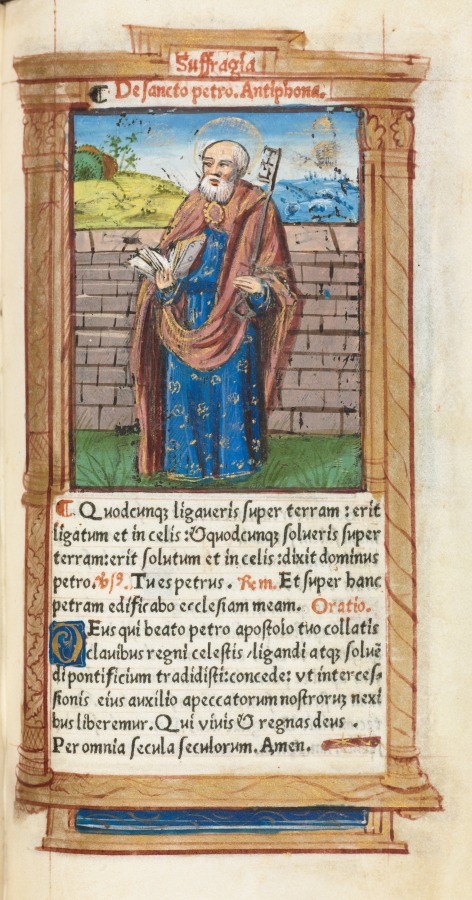 Suffragia
De sancto petro. Antiphona.
Quodcunqꝫ ligaueris super terram : erit
ligatum et in celis : & quodcunqꝫ solueris super
terram: erit solutum et in celis : dixit dominus
petro. Tu es petrus . Et super hanc
petram edificabo ecclesiam meam. Oratio.
DEus qui beato petro apostolo tuo collatis
clauibus regni celestis / ligandi atqꝫ soluē
di pontificium tradidisti: concede: vt interces⸗
sionis eius auxilio a peccatorum nostrorum nexi
bus liberemur. Qui viuis & regnas deus .
Per omnia secula seculorum. Amen.